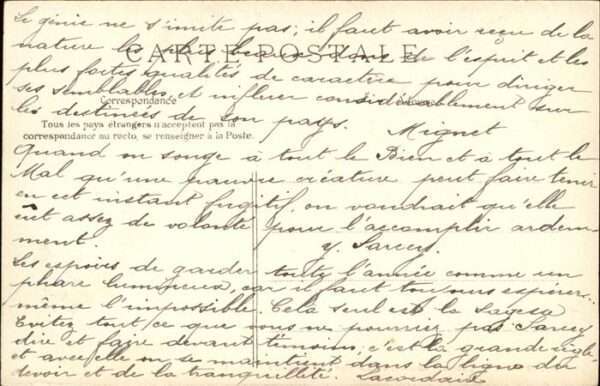 Le génie ne s'imite pas; il faut avoir reçu de la
nature les plus beaux dons de l'esprit et les
CARTE POSTALE
plus fortes qualités de caractère pour diriger
ses semblables, et influer considérablement sur
Correspondance
les destinées de son pays. Mignet
Tous les pays étrangers n'acceptent pas la
correspondance au recto, se renseigner à la Poste.
Quand on songe à tout le Bien et à tout le
Mal qu'une pauvre créature peut faire tenir
en cet instant fugitif, on voudrait qu'elle
eût assez de volonté pour l'accomplir ardem-
ment. Sarcey.
Les espoirs de garder toute l'année comme un
phare lumineux, car il faut toujours espérer...
même l'impossible. Cela seul est la Sagesse
Evitez tout ce que vous ne pourriez pas Sarcey
dire et faire devant témoins, c'est la grande règle
et avec elle on se maintient dans la ligne du
devoir et de la tranquillité. Lacordaire